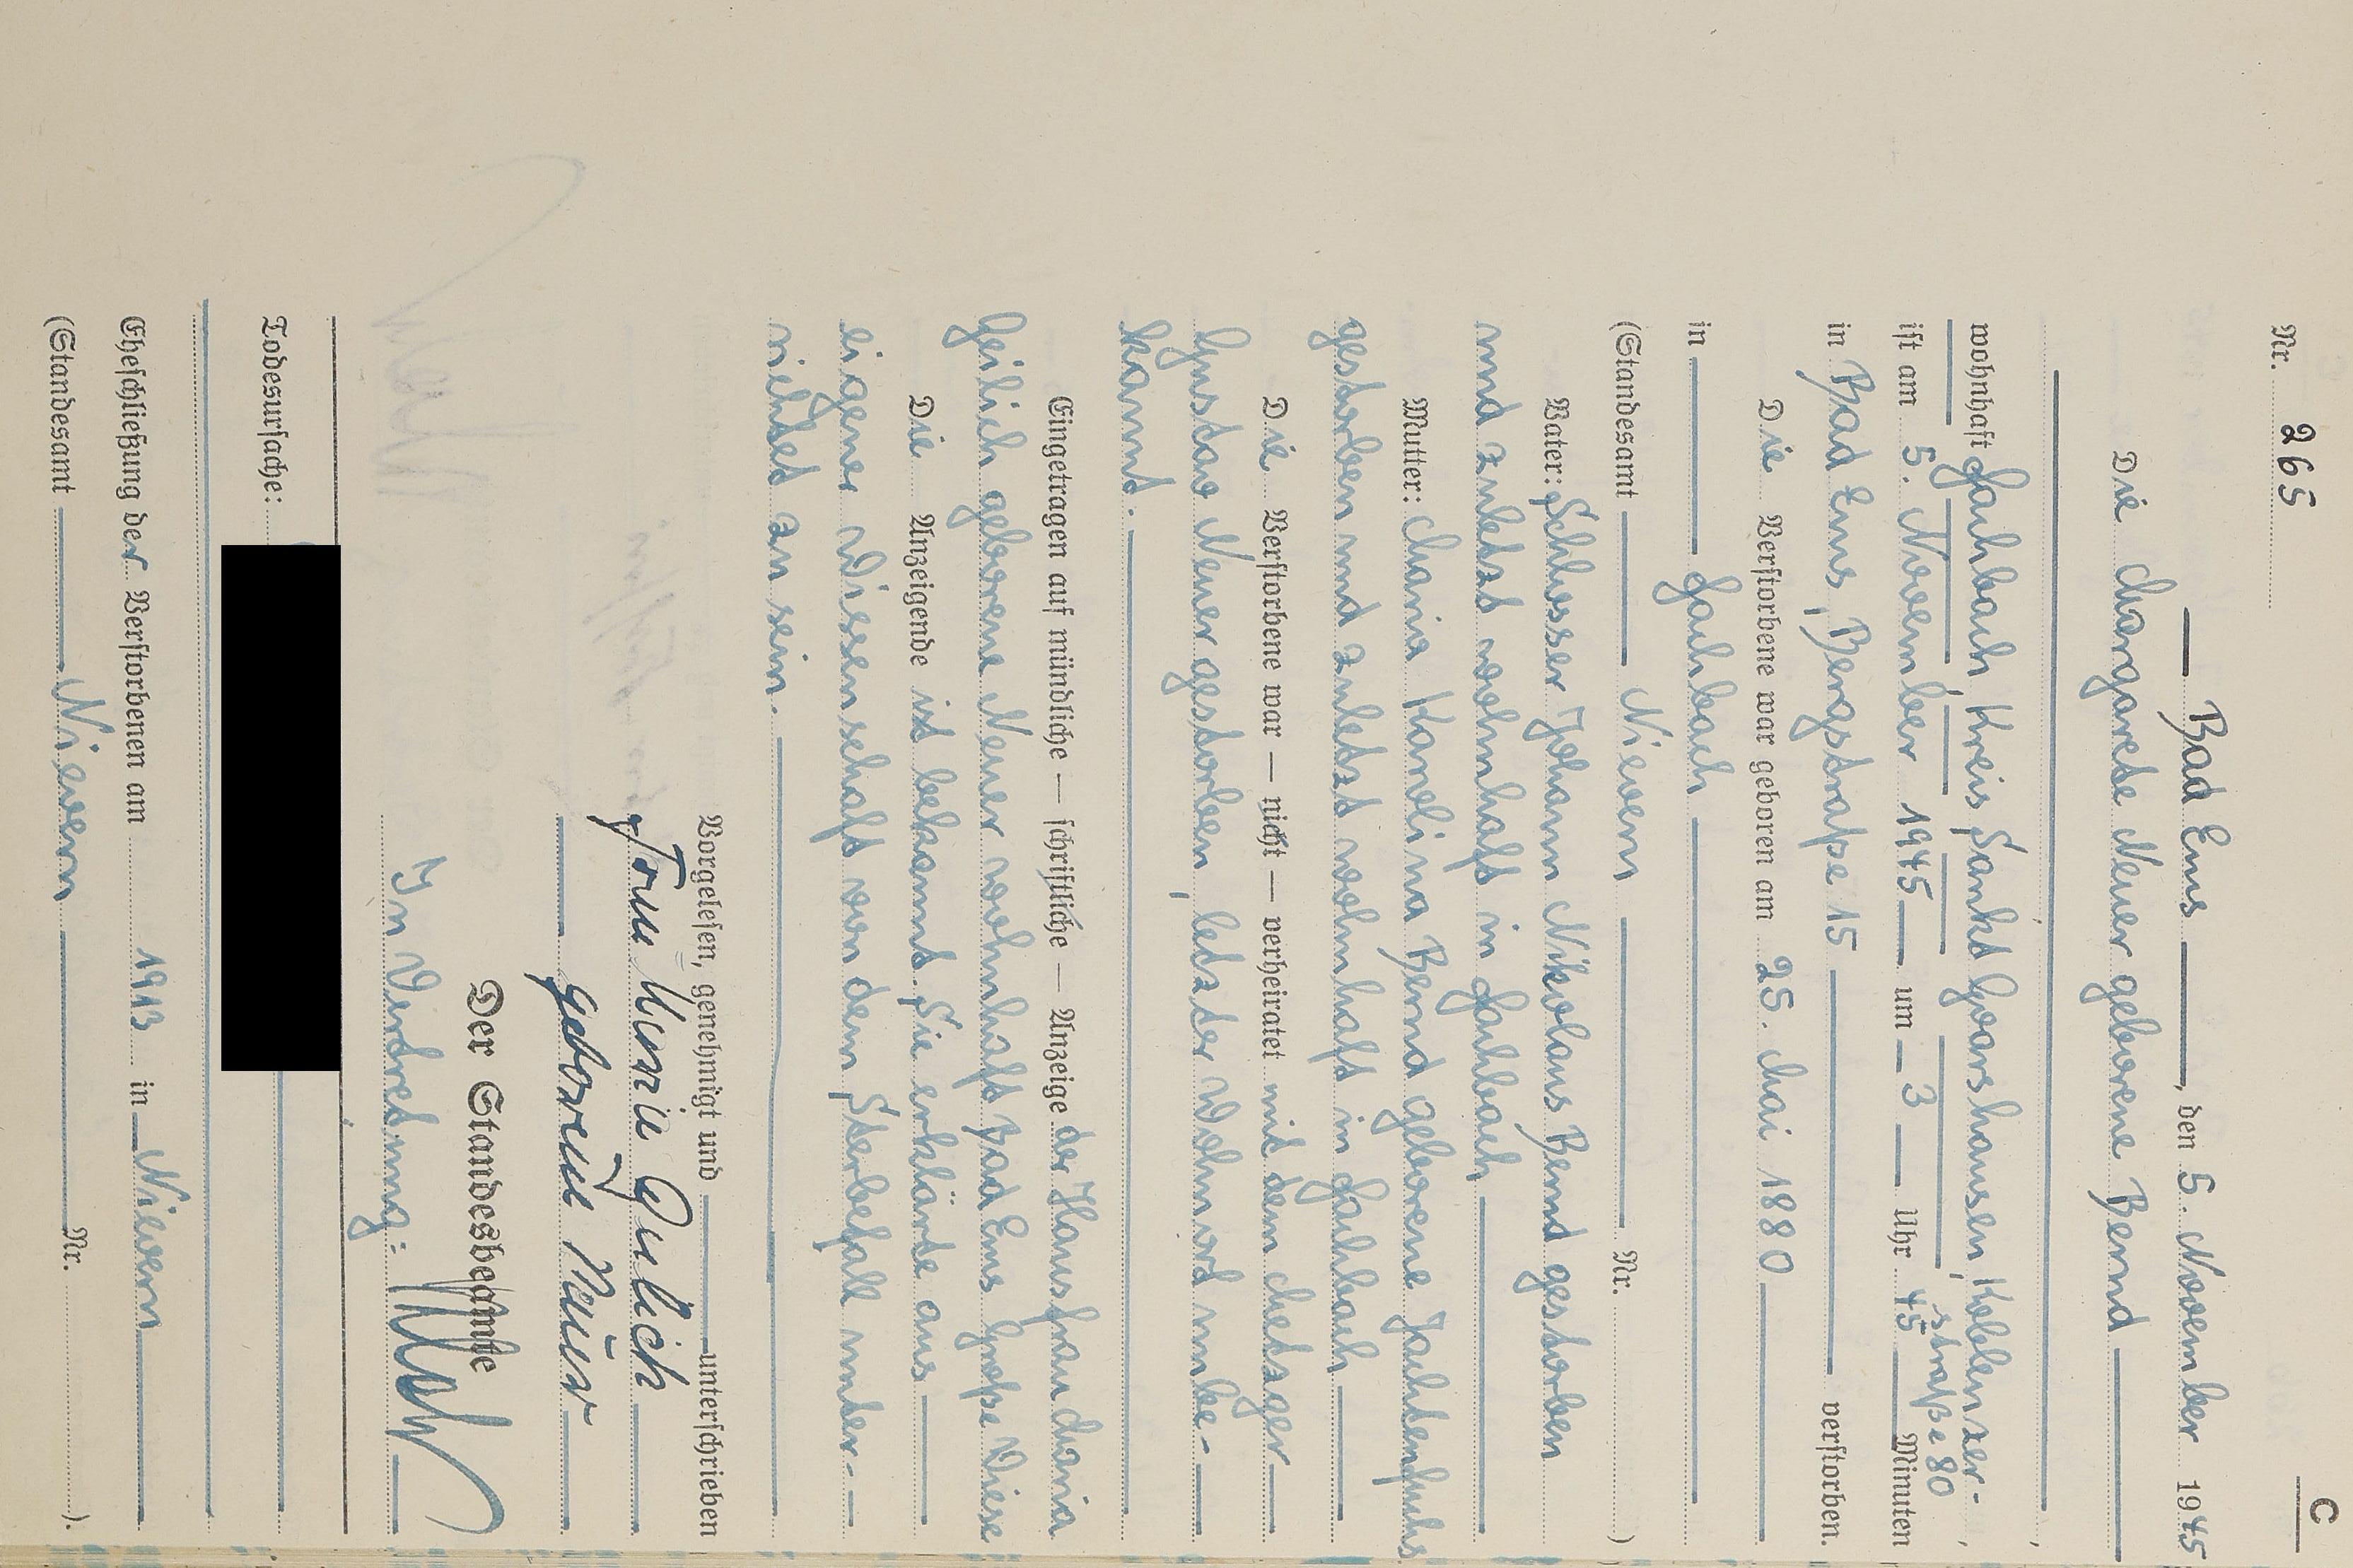 C
Nr. 265
Bad Ems, den 5. November 1945
Die Margarete Neuer geborene Bernd
wohnhaft Fachbach, Kreis Sankt Goarshausen, Koblenzer-
straße 80
ist am 5. November 1945 um 3 Uhr 45 Minuten
in Bad Ems, Bergstraße 15 verstorben.
Die Verstorbene war geboren am 25. Mai 1880
in Fachbach
(Standesamt Nievern Nr. )
Vater: Schlosser Johann Nikolaus Bernd gestorben
und zuletzt wohnhaft in Fachbach
Mutter: Maria Karolina Bernd geborene
gestorben und zuletzt wohnhaft in Fachbach
Die Verstorbene war — nicht — verheiratet mit dem Metzger
Gustav Neuer gestorben, letzter Wohnort unbe-
kannt.
Eingetragen auf mündliche — schriftliche — Anzeige der Hausfrau Maria
geborene Neuer wohnhaft Bad Ems Große Wiese
Die Anzeigende ist bekannt. Sie erklärte aus
eigener Wissenschaft von dem Sterbefall unter-
richtet zu sein.
Vorgelesen, genehmigt und unterschrieben
Frau Maria
geborene Neuer
Der Standesbeamte
In Vertretung:
Todesursache:
Eheschließung der Verstorbenen am 1913 in Nievern
(Standesamt Nievern Nr. ).